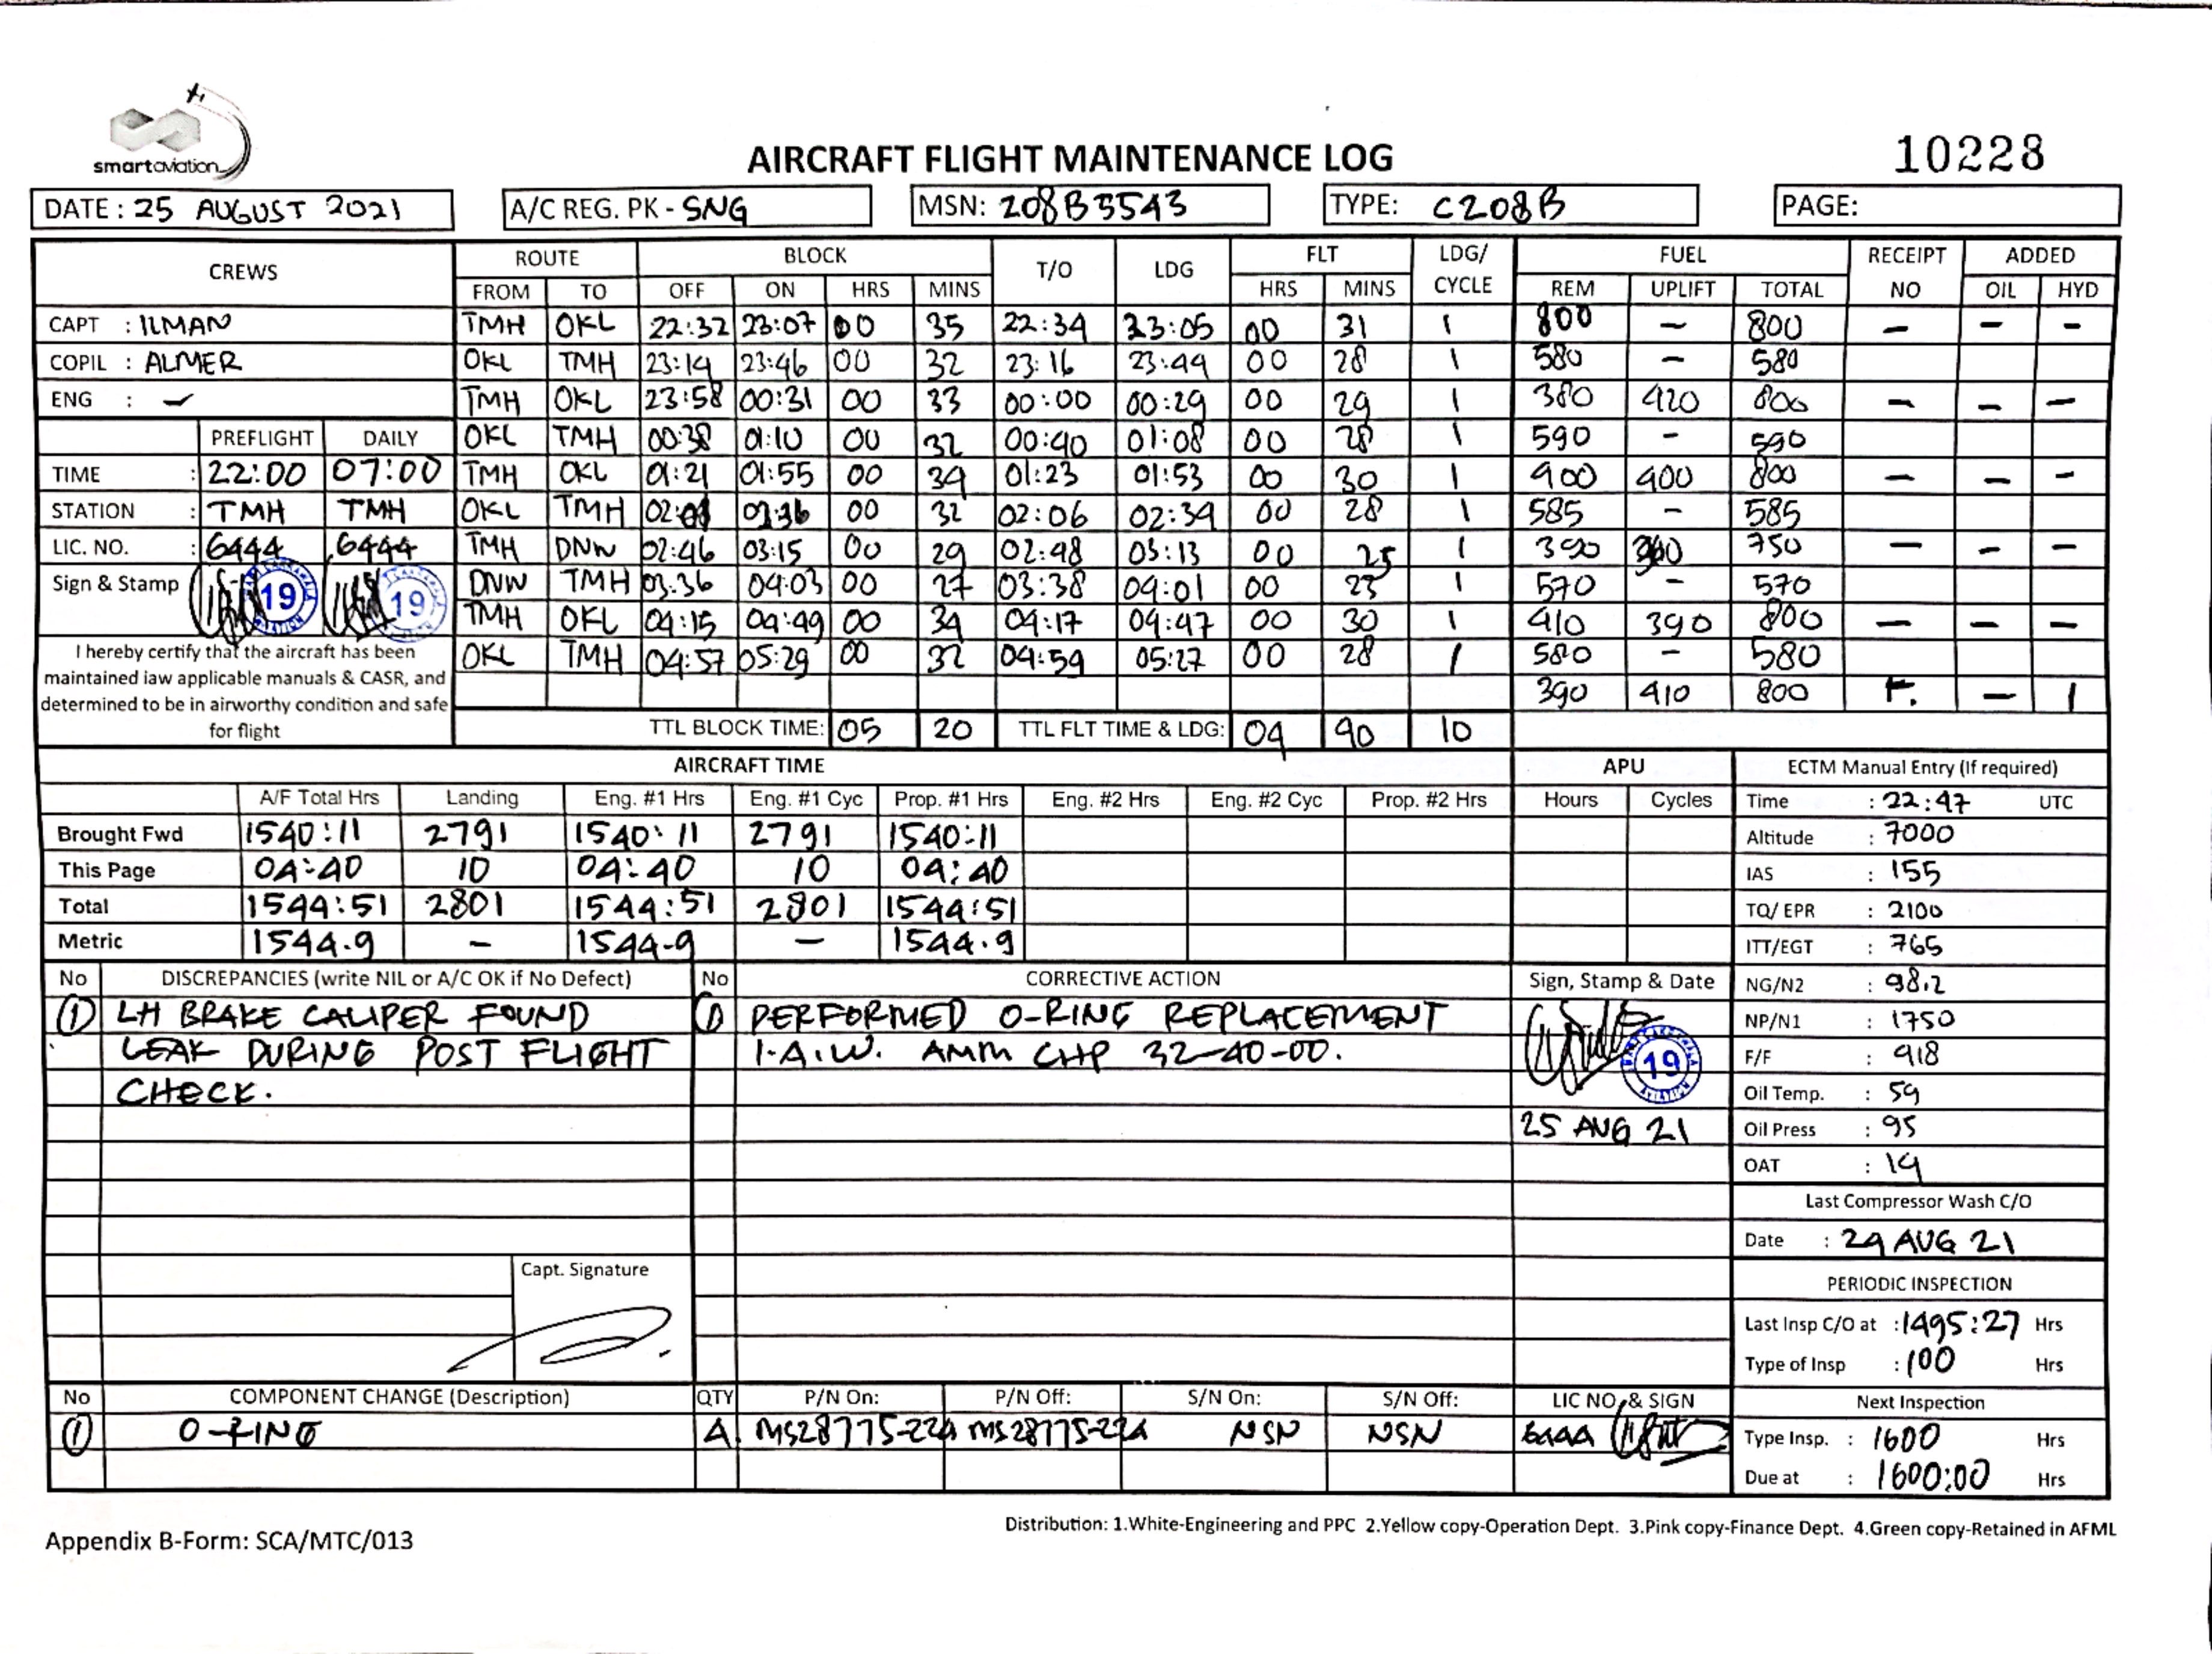 smartaviation
AIRCRAFT FLIGHT MAINTENANCE LOG
10228
DATE : 25 AUGUST 2021
A/C REG. PK - SNG
MSN: 208B5543
TYPE: C208B
PAGE:
CREWS ROUTE BLOCK T/O LDG FLT LDG/ CYCLE FUEL RECEIPT NO ADDED
FROM TO OFF ON HRS MINS HRS MINS REM UPLIFT TOTAL OIL HYD
CAPT : ILMAN TMH OKL 22:32 23:07 00 35 22:34 23:05 00 31 1 800 – 800 – – –
COPIL : ALMER OKL TMH 23:14 23:46 00 32 23:16 23:44 00 28 1 580 – 580
ENG : – TMH OKL 23:58 00:31 00 33 00:00 00:29 00 29 1 380 420 800 – – –
PREFLIGHT DAILY OKL TMH 00:38 01:10 00 32 00:40 01:08 00 28 1 590 – 590
TIME : 22:00 07:00 TMH OKL 01:21 01:55 00 34 01:23 01:53 00 30 1 400 400 800 – – –
STATION : TMH TMH OKL TMH 02:36 00 32 02:06 02:34 00 28 1 585 – 585
LIC. NO. : 6444 6444 TMH DNW 02:46 03:15 00 29 02:48 03:13 00 25 1 750 – – –
Sign & Stamp 19 19 DNW TMH 03:36 04:03 00 27 03:38 04:01 00 23 1 570 – 570
TMH OKL 04:15 04:49 00 34 04:17 04:47 00 30 1 410 390 800 – – –
OKL TMH 04:57 05:29 00 32 04:59 05:27 00 28 1 580 – 580
390 410 800 – 1
I hereby certify that the aircraft has been
maintained iaw applicable manuals & CASR, and
determined to be in airworthy condition and safe
for flight
TTL BLOCK TIME: 05 20 TTL FLT TIME & LDG: 04 40 10
AIRCRAFT TIME APU
A/F Total Hrs Landing Eng. #1 Hrs Eng. #1 Cyc Prop. #1 Hrs Eng. #2 Hrs Eng. #2 Cyc Prop. #2 Hrs Hours Cycles
Brought Fwd 1540:11 2791 1540:11 2791 1540:11
This Page 04:40 10 04:40 10 04:40
Total 1544:51 2801 1544:51 2801 1544:51
Metric 1544.9 – 1544.9 – 1544.9
ECTM Manual Entry (If required)
Time : 22:47 UTC
Altitude : 7000
IAS : 155
TQ/ EPR : 2100
ITT/EGT : 765
NG/N2 : 98.2
NP/N1 : 1750
F/F : 418
Oil Temp. : 59
Oil Press : 95
OAT : 14
Last Compressor Wash C/O
Date : 24 AUG 21
PERIODIC INSPECTION
Last Insp C/O at : 1495:27 Hrs
Type of Insp : 100 Hrs
Next Inspection
Type Insp. : 1600 Hrs
Due at : 1600:00 Hrs
No DISCREPANCIES (write NIL or A/C OK if No Defect) No CORRECTIVE ACTION Sign, Stamp & Date
① LH BRAKE CALIPER FOUND ① PERFORMED O-RING REPLACEMENT
LEAK DURING POST FLIGHT I.A.W. AMM CHP 32-40-00.
CHECK.
19
25 AUG 21
Capt. Signature
No COMPONENT CHANGE (Description) QTY P/N On: P/N Off: S/N On: S/N Off: LIC NO & SIGN
① O-RING 4 MS28775-224 MS28775-224 NSN NSN 6444
Appendix B-Form: SCA/MTC/013
Distribution: 1.White-Engineering and PPC 2.Yellow copy-Operation Dept. 3.Pink copy-Finance Dept. 4.Green copy-Retained in AFML